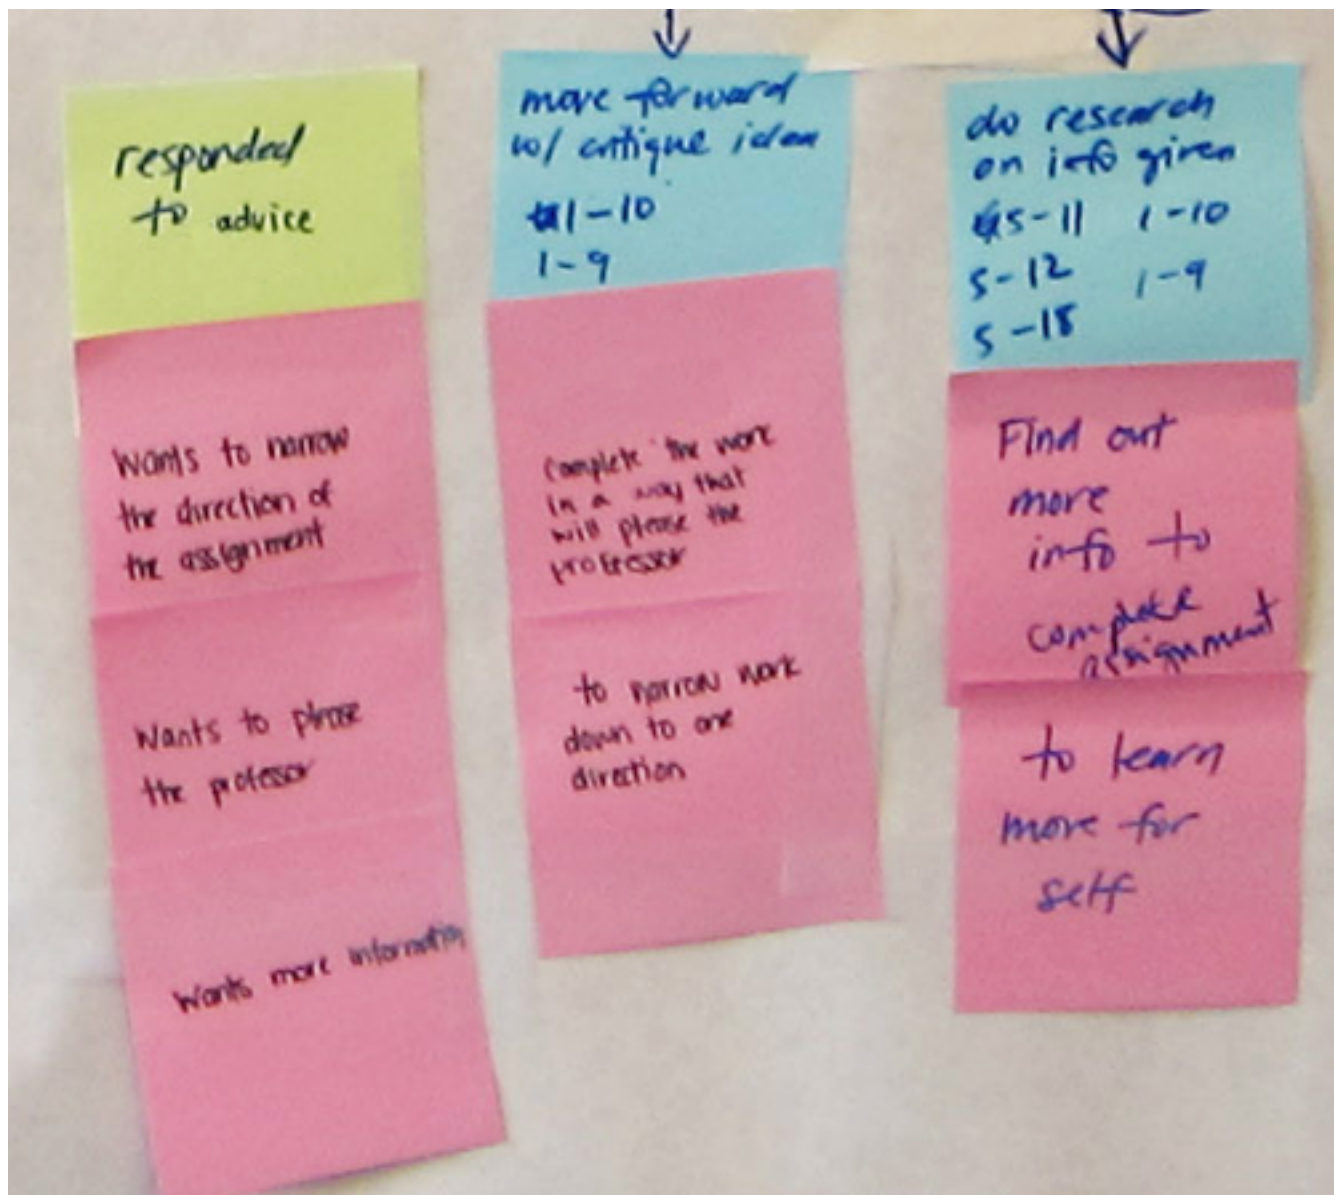 responded
to advice
Wants to narrow
the direction of
the assignment
Wants to please
the professor
Wants more information
move forward
w/ critique idea
1-10
1-9
Complete the work
in a way that
will please the
professor
to narrow work
down to one
direction
do research
on info given
s-11 1-10
s-12 1-9
s-18
Find out
more
info to
complete
assignment
to learn
more for
self